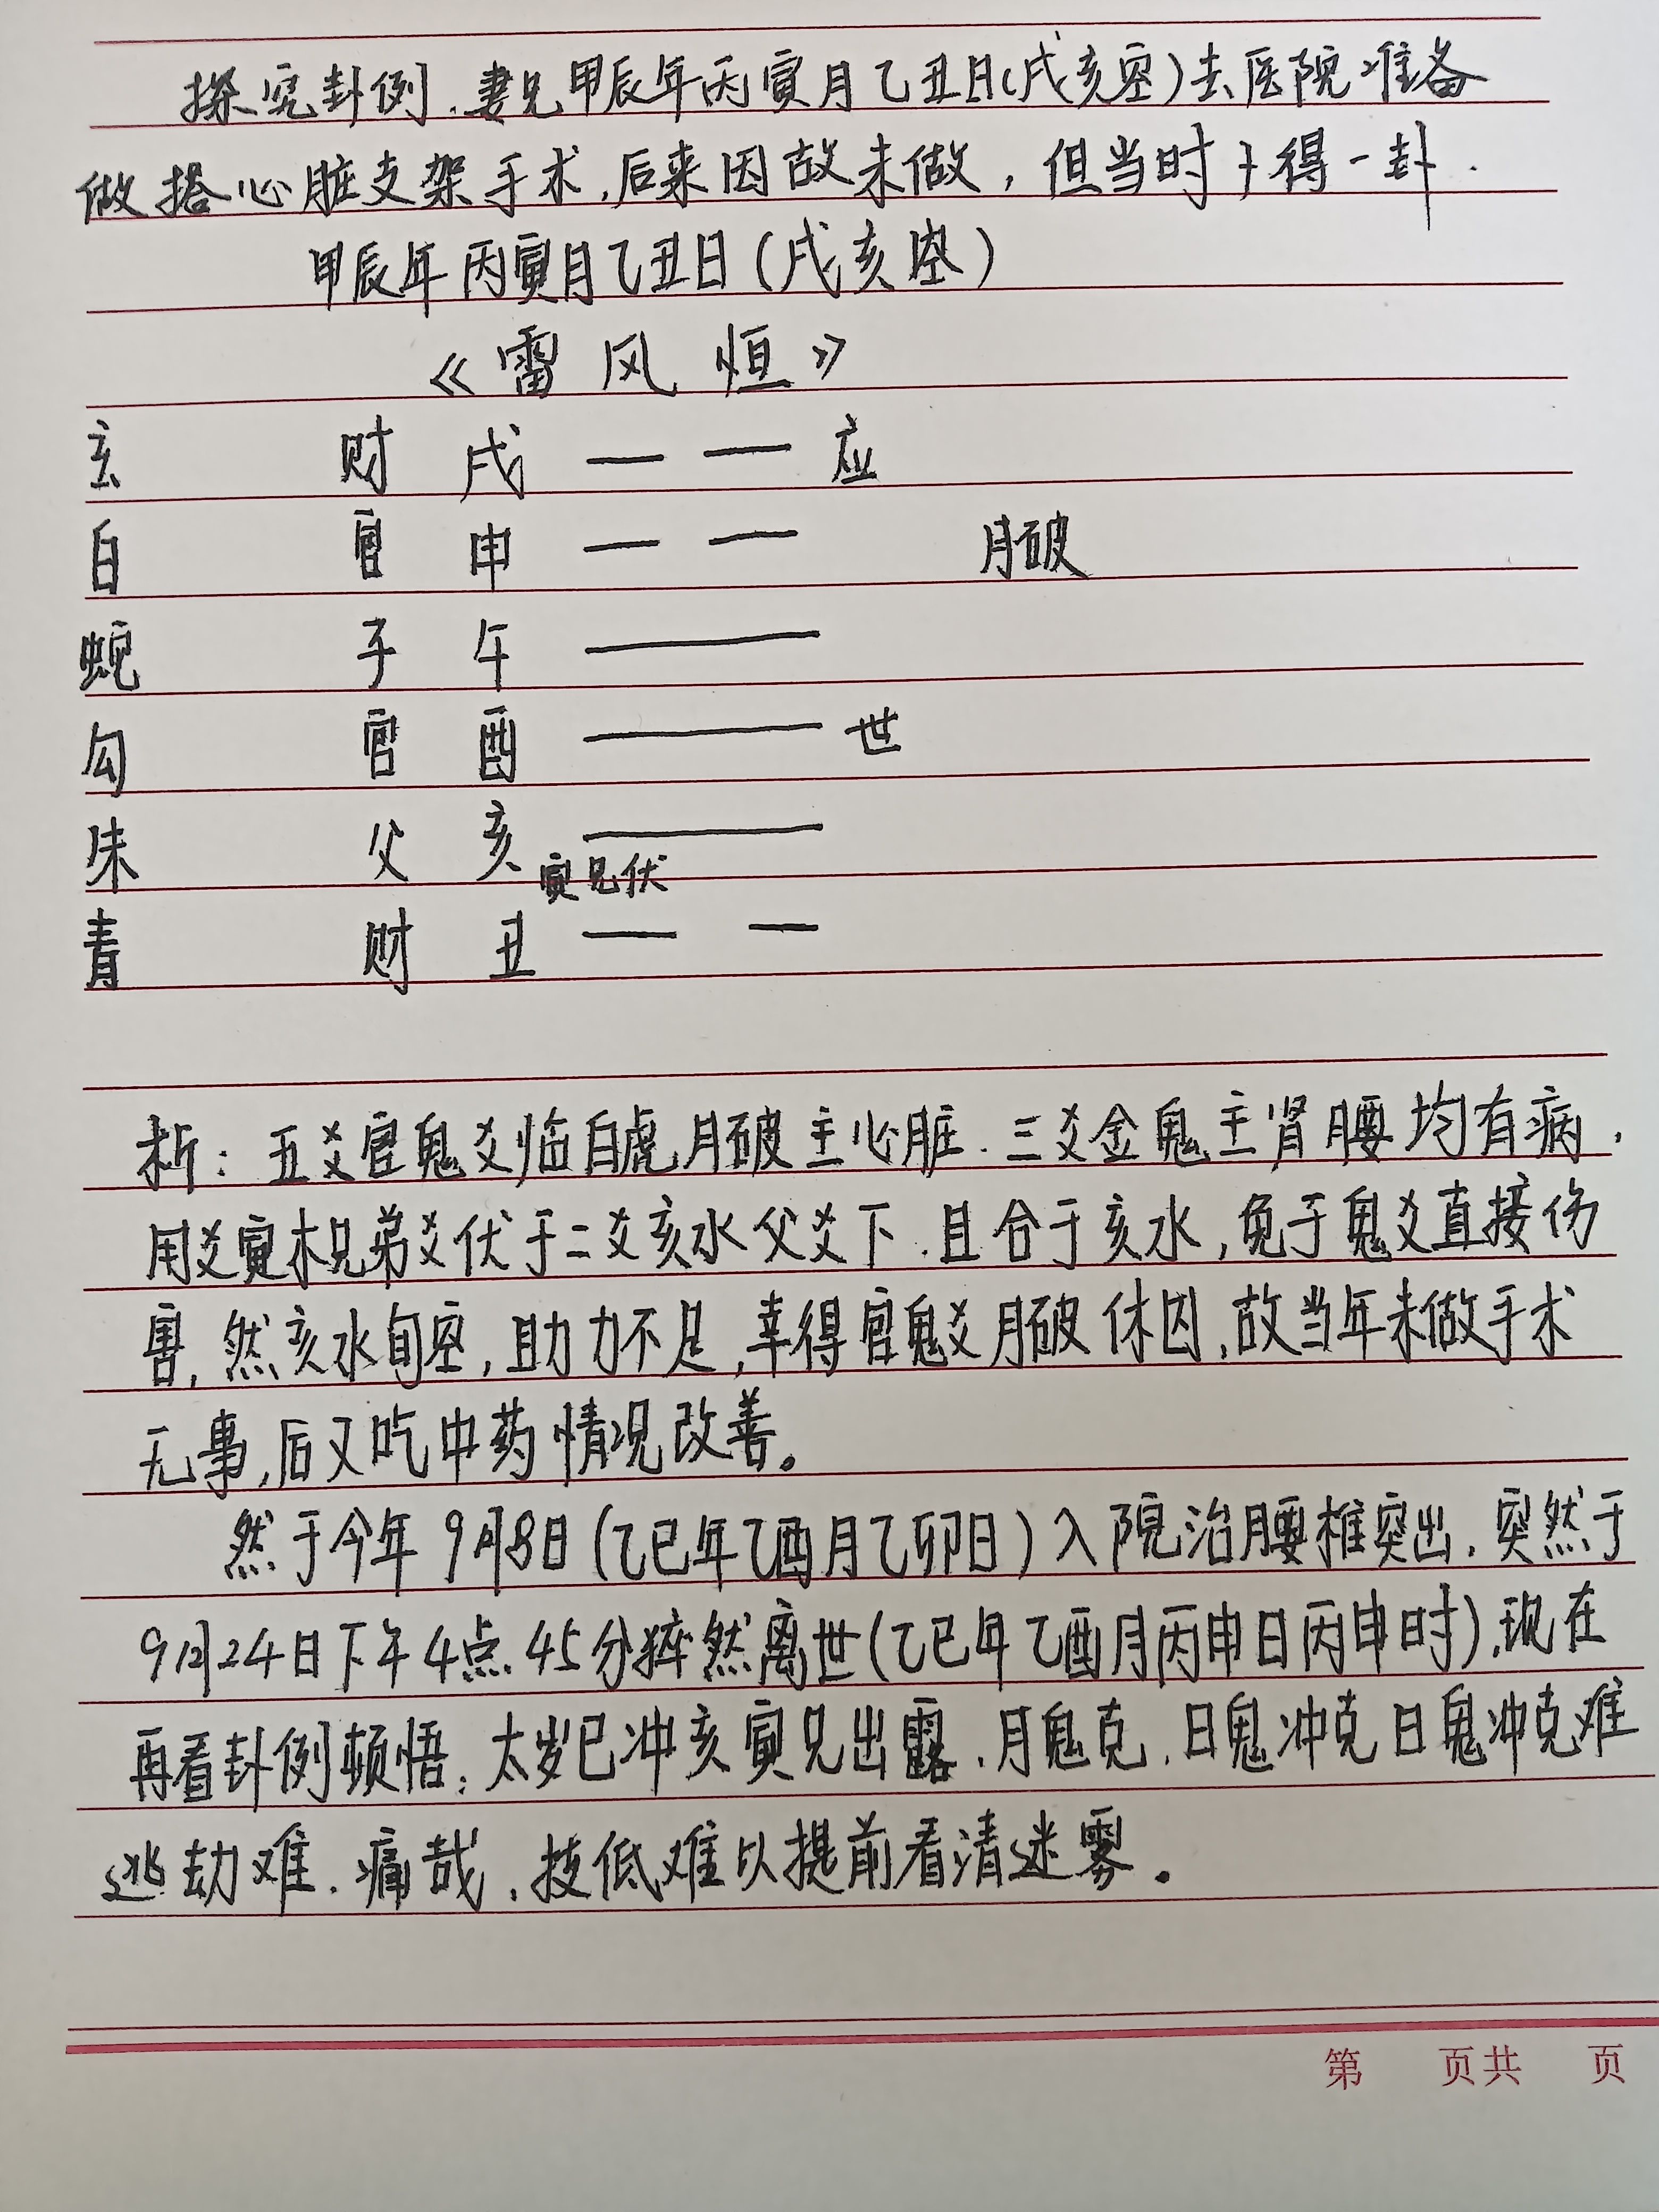 探究卦例.妻兄甲辰年丙寅月乙丑日(戌亥空)去医院准备
做搭心脏支架手术,后来因故未做,但当时予得一卦.
甲辰年丙寅月乙丑日(戌亥空)
《雷风恒》
玄 财 戌 应
白 官 申 月破
蛇 子 午
勾 官 酉 世
朱 父 亥
寅兄伏
青 财 丑
析:五爻官鬼爻临白虎月破主心脏.三爻金鬼主肾腰均有病,
用爻寅木兄弟爻伏于二爻亥水父爻下.且合于亥水,免于鬼爻直接伤
害,然亥水旬空,助力不足,幸得官鬼爻月破休囚,故当年未做手术
无事,后又吃中药情况改善。
然于今年9月8日(乙巳年乙酉月乙卯日)入院治腰椎突出.突然于
9月24日下午4点45分猝然离世(乙巳年乙酉月丙申日丙申时),现在
再看卦例顿悟:太岁巳冲亥寅兄出露.月鬼克.日鬼冲克日鬼冲克难
逃劫难.痛哉,技低难以提前看清迷雾。
第 页共 页